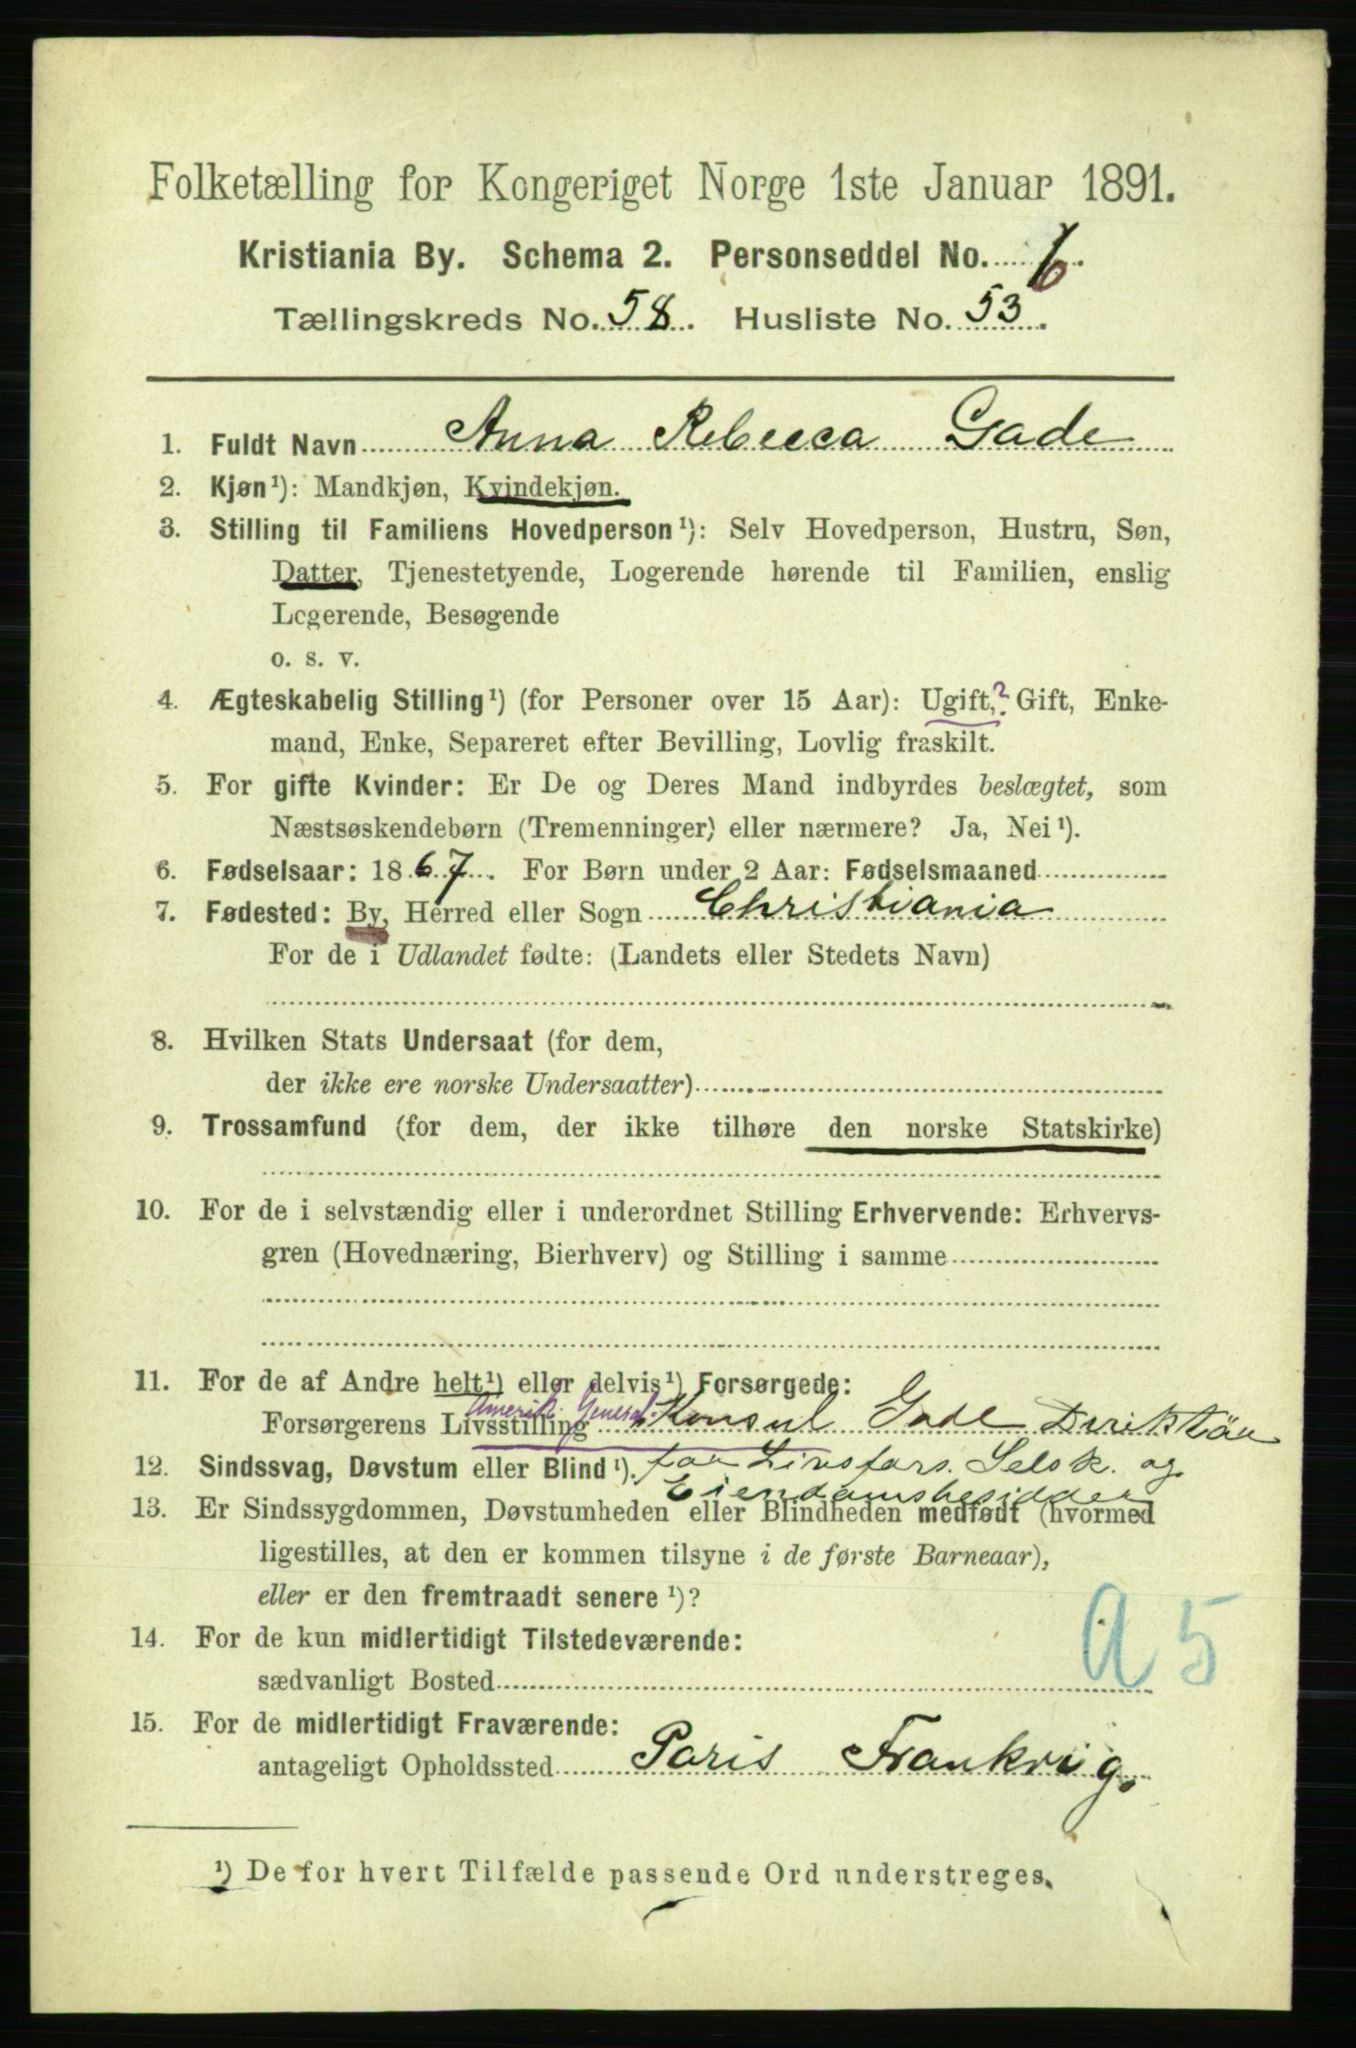 Folketælling for Kongeriget Norge 1ste Januar 1891.
Kristiania By. Schema 2. Personseddel No. 6.
Tællingskreds No. 58. Husliste No. 53.
1. Fuldt Navn Anna Rebecca Gade
2. Kjøn¹): Mandkjøn, Kvindekjøn.
3. Stilling til Familiens Hovedperson¹): Selv Hovedperson, Hustru, Søn,
Datter, Tjenestetyende, Logerende hørende til Familien, enslig
Logerende, Besøgende
o. s. v.
4. Ægteskabelig Stilling¹) (for Personer over 15 Aar): Ugift,? Gift, Enke-
mand, Enke, Separeret efter Bevilling, Lovlig fraskilt.
5. For gifte Kvinder: Er De og Deres Mand indbyrdes beslægtet, som
Næstsøskendebørn (Tremenninger) eller nærmere? Ja, Nei¹).
6. Fødselsaar: 1867. For Børn under 2 Aar: Fødselsmaaned
7. Fødested: By, Herred eller Sogn Christiania
For de i Udlandet fødte: (Landets eller Stedets Navn)
8. Hvilken Stats Undersaat (for dem,
der ikke ere norske Undersaatter)
9. Trossamfund (for dem, der ikke tilhøre den norske Statskirke)
10. For de i selvstændig eller i underordnet Stilling Erhvervende: Erhvervs-
gren (Hovednæring, Bierhverv) og Stilling i samme
11. For de af Andre helt¹) eller delvis¹) Forsørgede:
Amerik. General.
Forsørgerens Livsstilling Konsul Gade Direktör
12. Sindssvag, Døvstum eller Blind¹). for Livsfors. Selsk. og
Eiendomsbesidder
13. Er Sindssygdommen, Døvstumheden eller Blindheden medfødt (hvormed
ligestilles, at den er kommen tilsyne i de første Barneaar),
eller er den fremtraadt senere¹)?
14. For de kun midlertidigt Tilstedeværende:
sædvanligt Bosted
A 5
15. For de midlertidigt Fraværende:
antageligt Opholdssted Paris Frankrig.
¹) De for hvert Tilfælde passende Ord understreges.